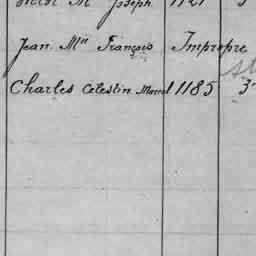 M Joseph 1121
Jean Mie François Impropre
Charles Célestin Marcel 1185 3